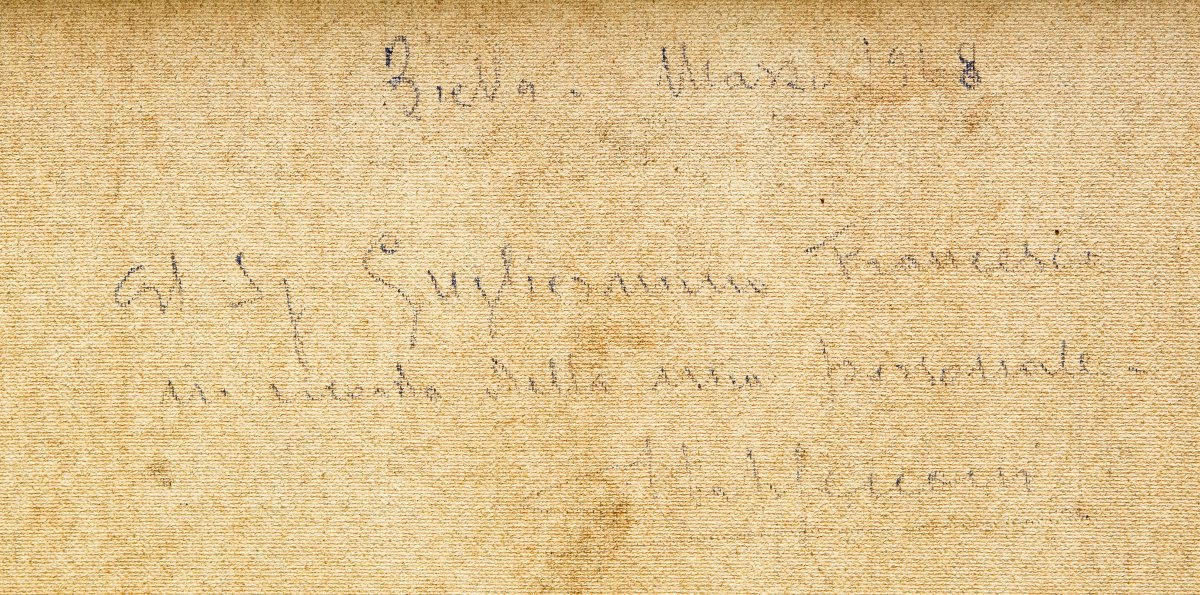 Biella. Marzo 1968
Al Sig Gugliermin Francesco
in ricordo della mia personale.